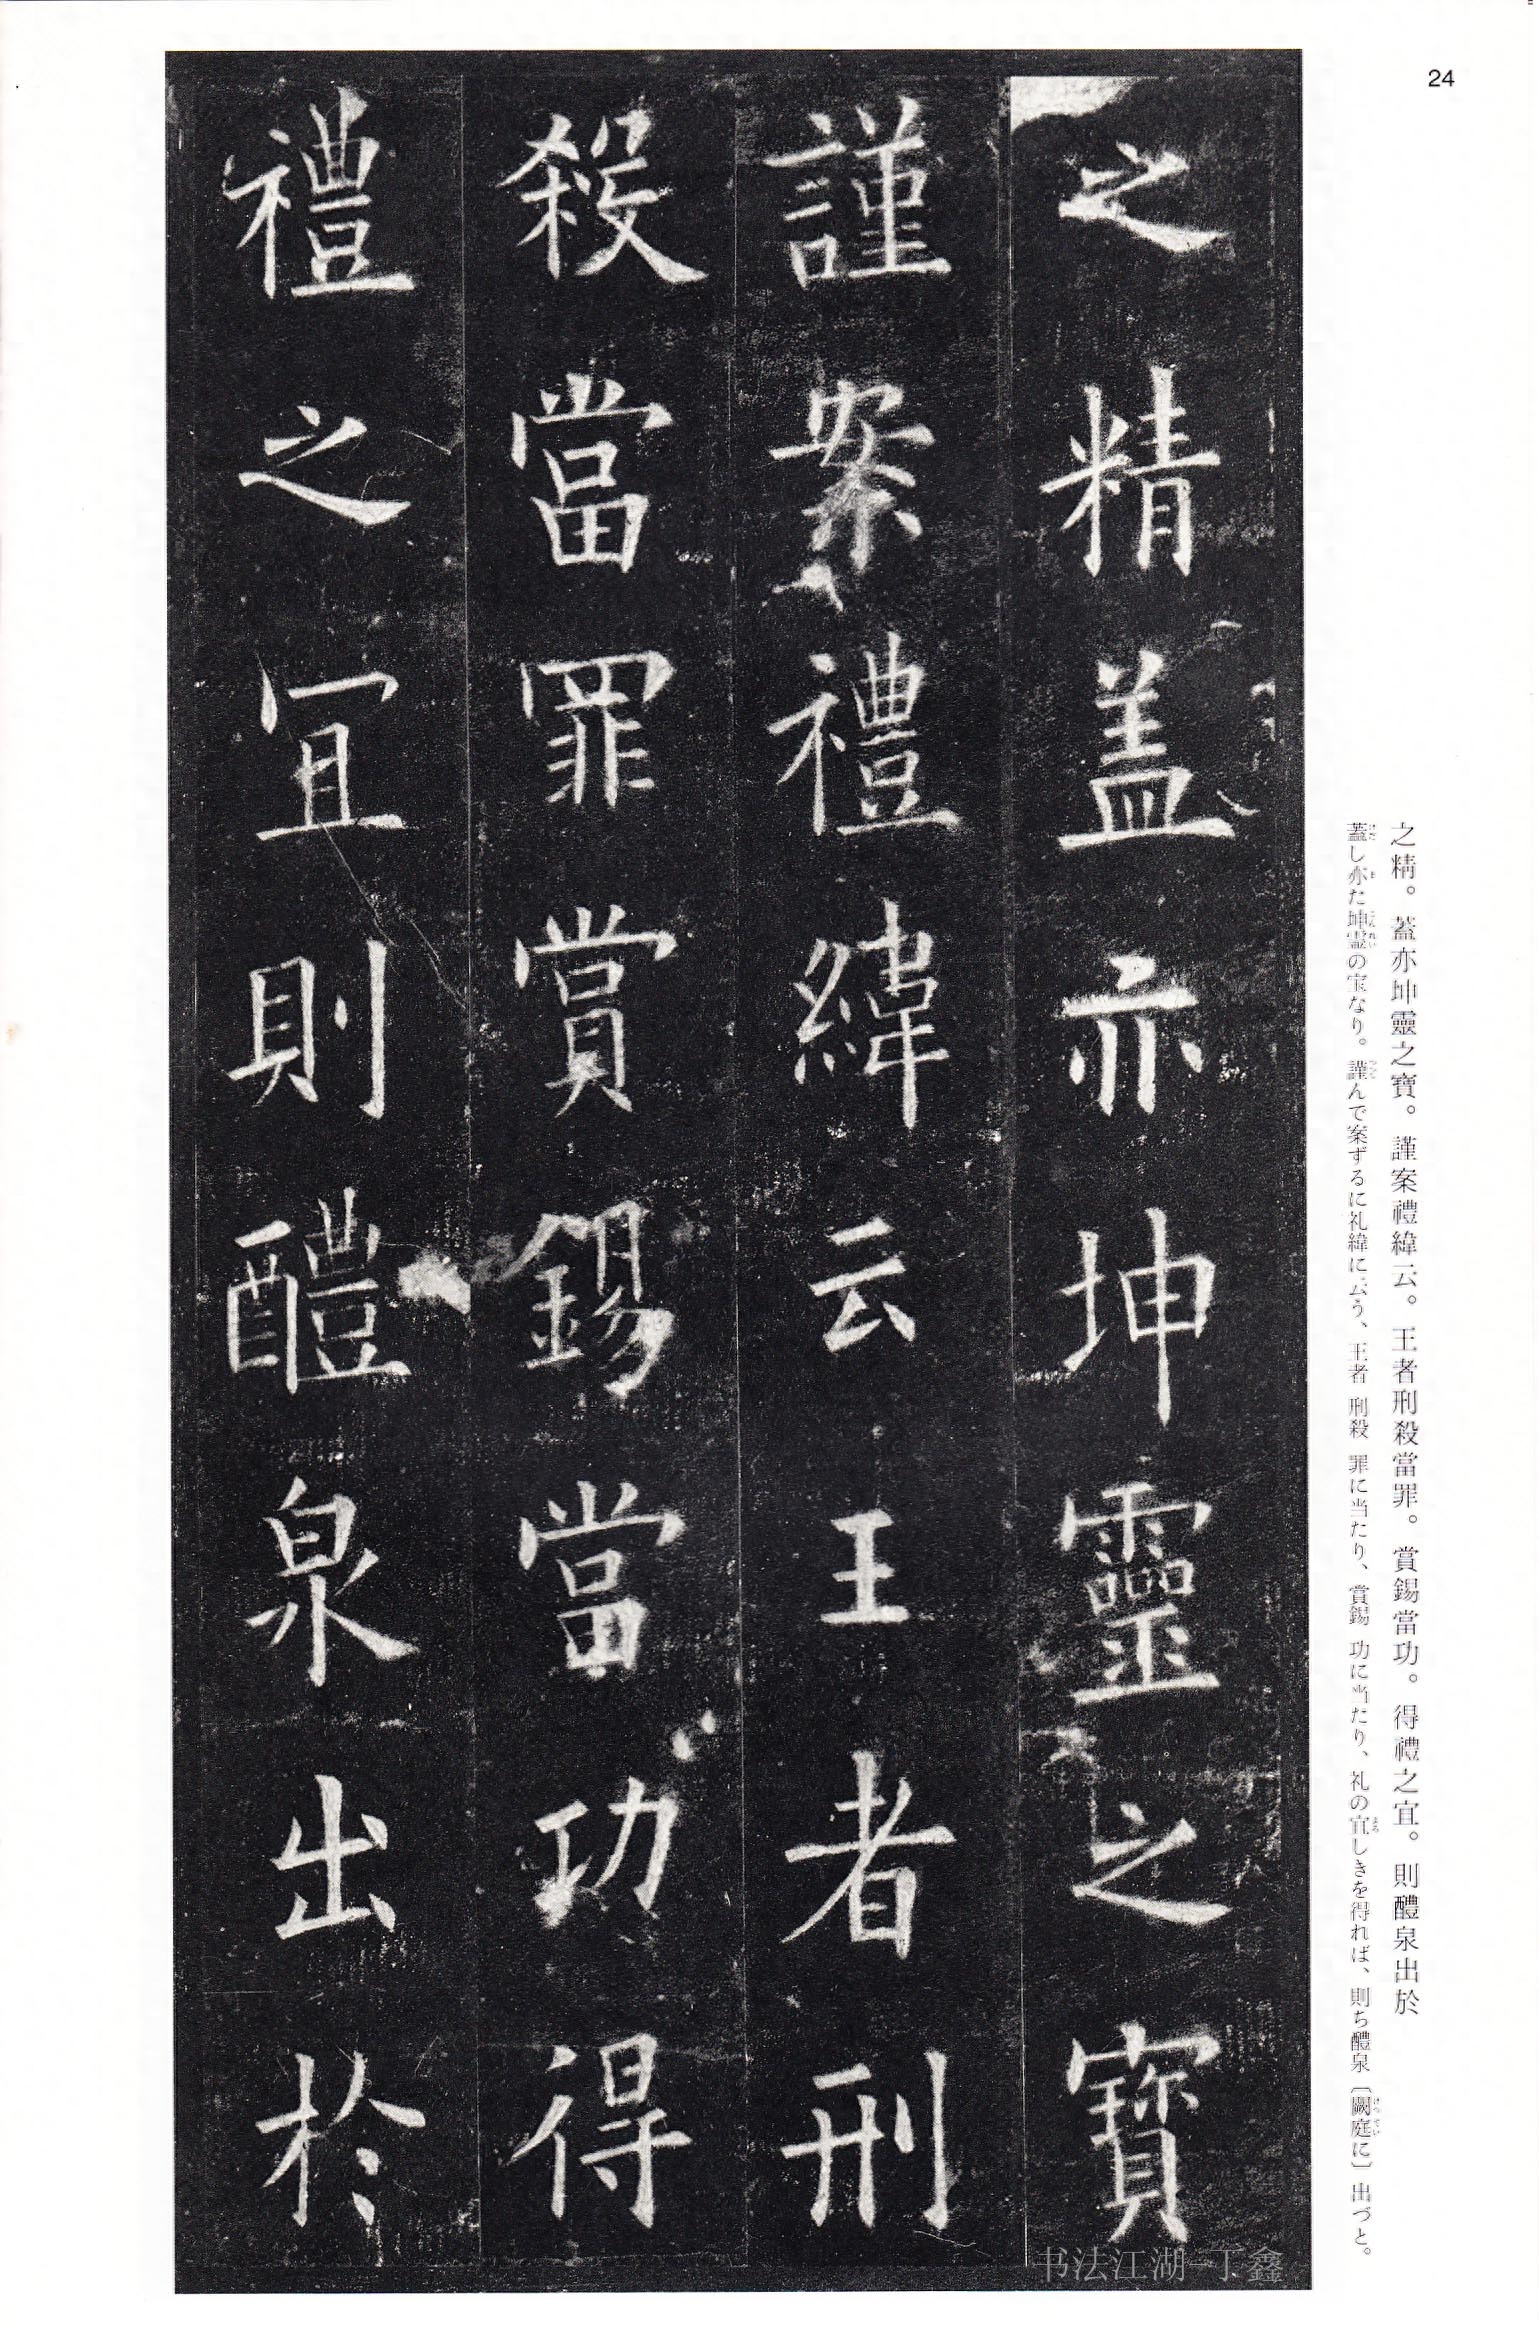 24
之精。蓋亦坤靈之寶。謹案禮緯云。王者刑殺當罪。賞錫當功。得禮之宜。則醴泉出於
蓋し亦た坤霊の宝なり。謹んで案ずるに礼緯に云う、王者 刑殺 罪に当たり、賞錫 功に当たり、礼の宜しきを得れば、則ち醴泉〔闕庭に〕出づと。
之精盖亦坤靈之寶
謹案禮緯云王者刑
殺當罪賞錫當功得
禮之冝則醴泉出於
书法江湖-丁鑫